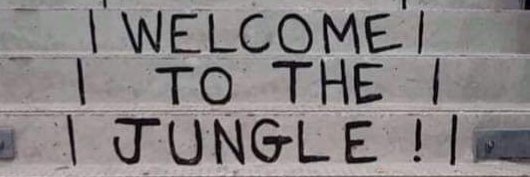 | WELCOME |
| TO THE |
| JUNGLE ! |